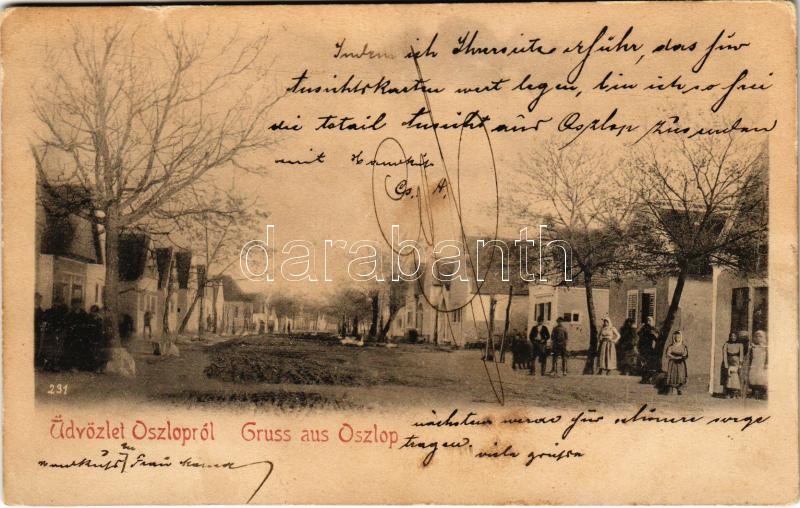 Indem ich Ihrerseits erfuhr, das für
Ansichtskarten wert legen, bin ich so frei
die totail Ansicht aus Oszlop zusenden
mit Handkuß
Cs. A.
darabanth
231
Üdvözlet Oszlopról Gruss aus Oszlop
nächstem werde für schönere sorge
tragen, viele grüsse
Handkuß Frau